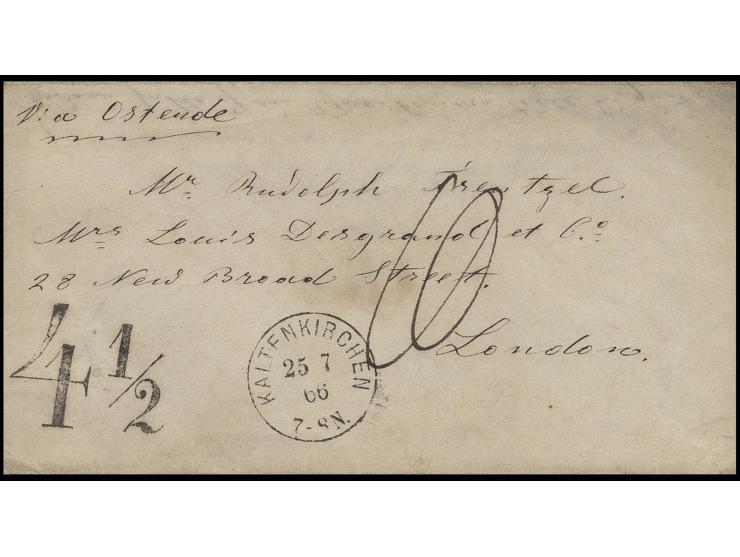 Via Ostende
Mr. Rudolph Frentzel.
Mrs Louis Desgrand et Co.
28 New Broad Street.
London.
10
4 1/2
KALTENKIRCHEN
25 7
66
7-8N.